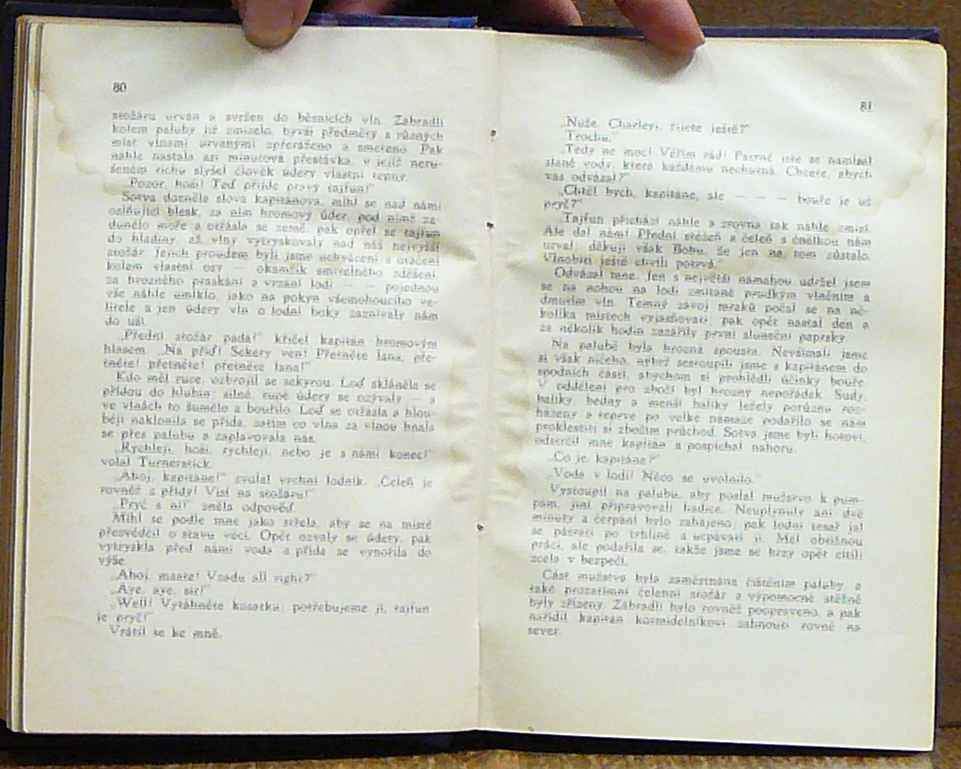 80
stožáru urván a svržen do běsnících vln. Zábradlí
kolem paluby již zmizelo, bývší předměty a různých
míst vlnami urvanými zpřeráženo a smeteno. Pak
náhle nastala asi minutová přestávka, v jejíž neru-
šeném tichu slyšel člověk údery vlastní tepny.
„Pozor, hoši! Teď přijde pravý tajfun!"
Sotva dozněla slova kapitánova, mihl se nad námi
oslňující blesk, za ním hromový úder, pod nímž za-
dunělo moře a otřásla se země, pak opřel se tajfun
do hladiny, až vlny vytryskovaly nad náš nejvyšší
stožár. Jejich proudem byli jsme uchváceni a otáčeni
kolem vlastní osy — okamžik smrtelného zděšení,
za hrozného praskání a vrzání lodi — — pojednou
vše náhle umlklo, jako na pokyn všemohoucího ve-
litele a jen údery vln o lodní boky zaznívaly nám
do uší.
„Přední stožár padá!" křičel kapitán hromovým
hlasem. „Na příď! Sekery ven! Přetněte lana, pře-
tněte! přetněte! přetněte lana!"
Kdo měl ruce, ozbrojil se sekyrou. Loď skláněla se
přídou do hlubin; silné, tupé údery se ozývaly — a
ve vlnách to šumělo a bouřilo. Loď se otřásla a hlou-
běji naklonila se příďa, zatím co vlna za vlnou hnala
se přes palubu a zaplavovala nás.
„Rychleji, hoši, rychleji, nebo je s námi konec!"
volal Turnerstick.
„Ahoj, kapitáne!" zvolal vrchní lodník. „Čeleň je
rovněž s přídy! Visí na stožáru!"
„Pryč s ní!" zněla odpověď.
Mihl se podle mne jako střela, aby se na místě
přesvědčil o stavu věcí. Opět ozvaly se údery, pak
vytryskla před námi voda a příďa se vynořila do
výše.
„Ahoj, maate! Vzadu all right?"
„Aye, aye, sir!"
„Well! Vytáhněte kosatku, potřebujeme ji, tajfun
je pryč!"
Vrátil se ke mně.
81
„Nuže, Charleyi, žijete ještě?"
Trochu.
„Tedy ne moc! Věřím rád! Patrně jste se nalízal
slané vody, která každému nechutná. Chcete, abych
vás odvázal?"
„Chtěl bych, kapitáne, ale — — — bouře je už
pryč?"
Tajfun přichází náhle a zrovna tak náhle zmizí.
Ale dal nám! Přední stěžeň a čeleň s čnělkou nám
urval, děkuji však Bohu, že jen na tom zůstalo.
Vlnobití ještě chvíli potrvá."
Odvázal mne. Jen s největší námahou udržel jsem
se na nohou na lodi zmítané prudkým vlněním a
dmutím vln. Temný závoj mraků počal se na ně-
kolika místech vyjasňovati, pak opět nastal den a
za několik hodin zazářily první sluneční paprsky.
Na palubě byla hrozná spousta. Nevšímali jsme
si však ničeho, nýbrž sestoupili jsme s kapitánem do
spodních částí, abychom si prohlédli účinky bouře.
V oddělení pro zboží byl hrozný nepořádek. Sudy,
balíky, bedny a menší balíky ležely porůznu roz-
házeny a teprve po velké námaze podařilo se nám
proklestiti si zbožím průchod. Sotva jsme byli hotovi,
odstrčil mne kapitán a pospíchal nahoru.
„Co je, kapitáne?"
„Voda v lodi! Něco se uvolnilo."
Vystoupil na palubu, aby poslal mužstvo k pum-
pám, jiní připravovali hadice. Neuplynuly ani dvě
minuty a čerpání bylo zahájeno, pak lodní tesař jal
se pátrati po trhlině a ucpávati ji. Měl obtížnou
práci, ale podařila se, takže jsme se brzy opět cítili
zcela v bezpečí.
Část mužstva byla zaměstnána čištěním paluby, a
také prozatímní čelenní stožár a výpomocné stěžně
byly zřízeny. Zábradlí bylo rovněž poopraveno, a pak
nařídil kapitán kormidelníkovi zahnouti rovně na
sever.